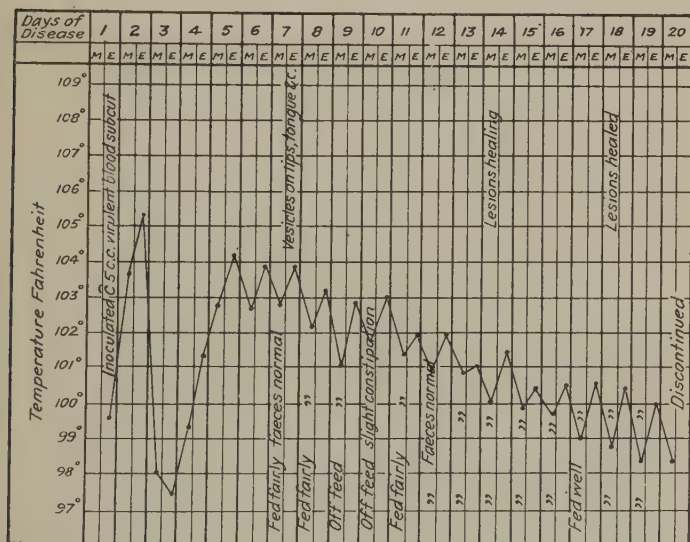 Days of Disease 1 2 3 4 5 6 7 8 9 10 11 12 13 14 15 16 17 18 19 20
M E M E M E M E M E M E M E M E M E M E M E M E M E M E M E M E M E M E M E M E
Temperature Fahrenheit
109°
108°
107°
106°
105°
104°
103°
102°
101°
100°
99°
98°
97°
Inoculated C 5 c.c. virulent blood subcut
Vesicles on lips, tongue &c.
Lesions healing
Lesions healed
Discontinued
faeces normal
"
"
slight constipation
"
Faeces normal
"
"
"
"
"
"
"
Fed fairly
Fed fairly
Off feed
Off feed
Fed fairly
"
"
"
"
"
Fed well
"
"